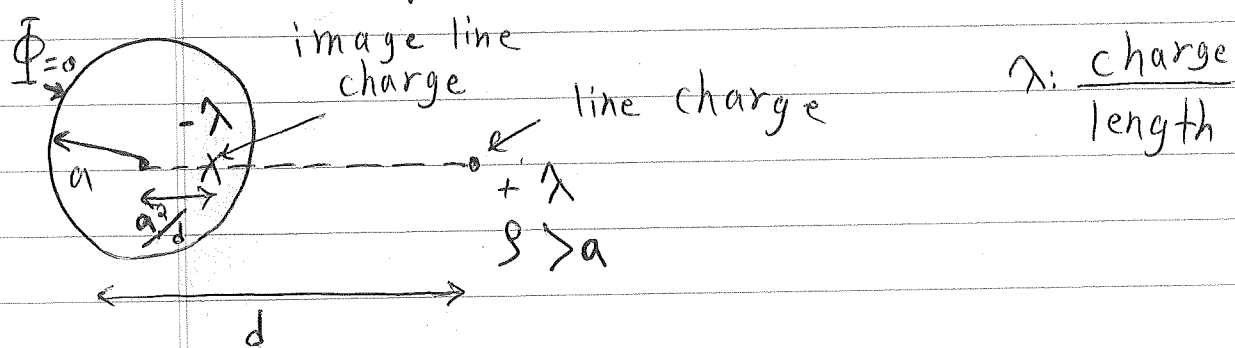 Φ=0
image line
charge
line charge
λ: charge/length
-λ
a
a²/d
+λ
ρ>a
d